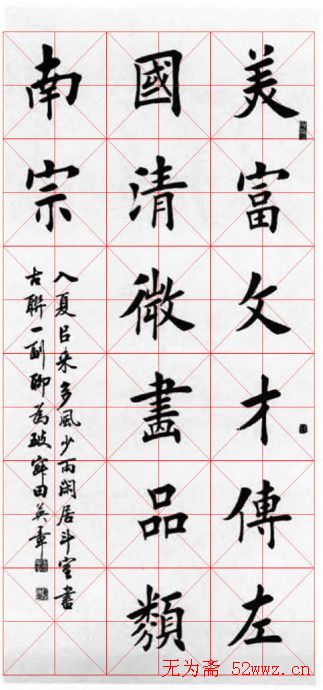 美富文才傳左
國清微畫品類
南宗
入夏以来多風少雨閑居斗室書
古聯一副聊為破寂田英章
无为斋 52wwz.cn